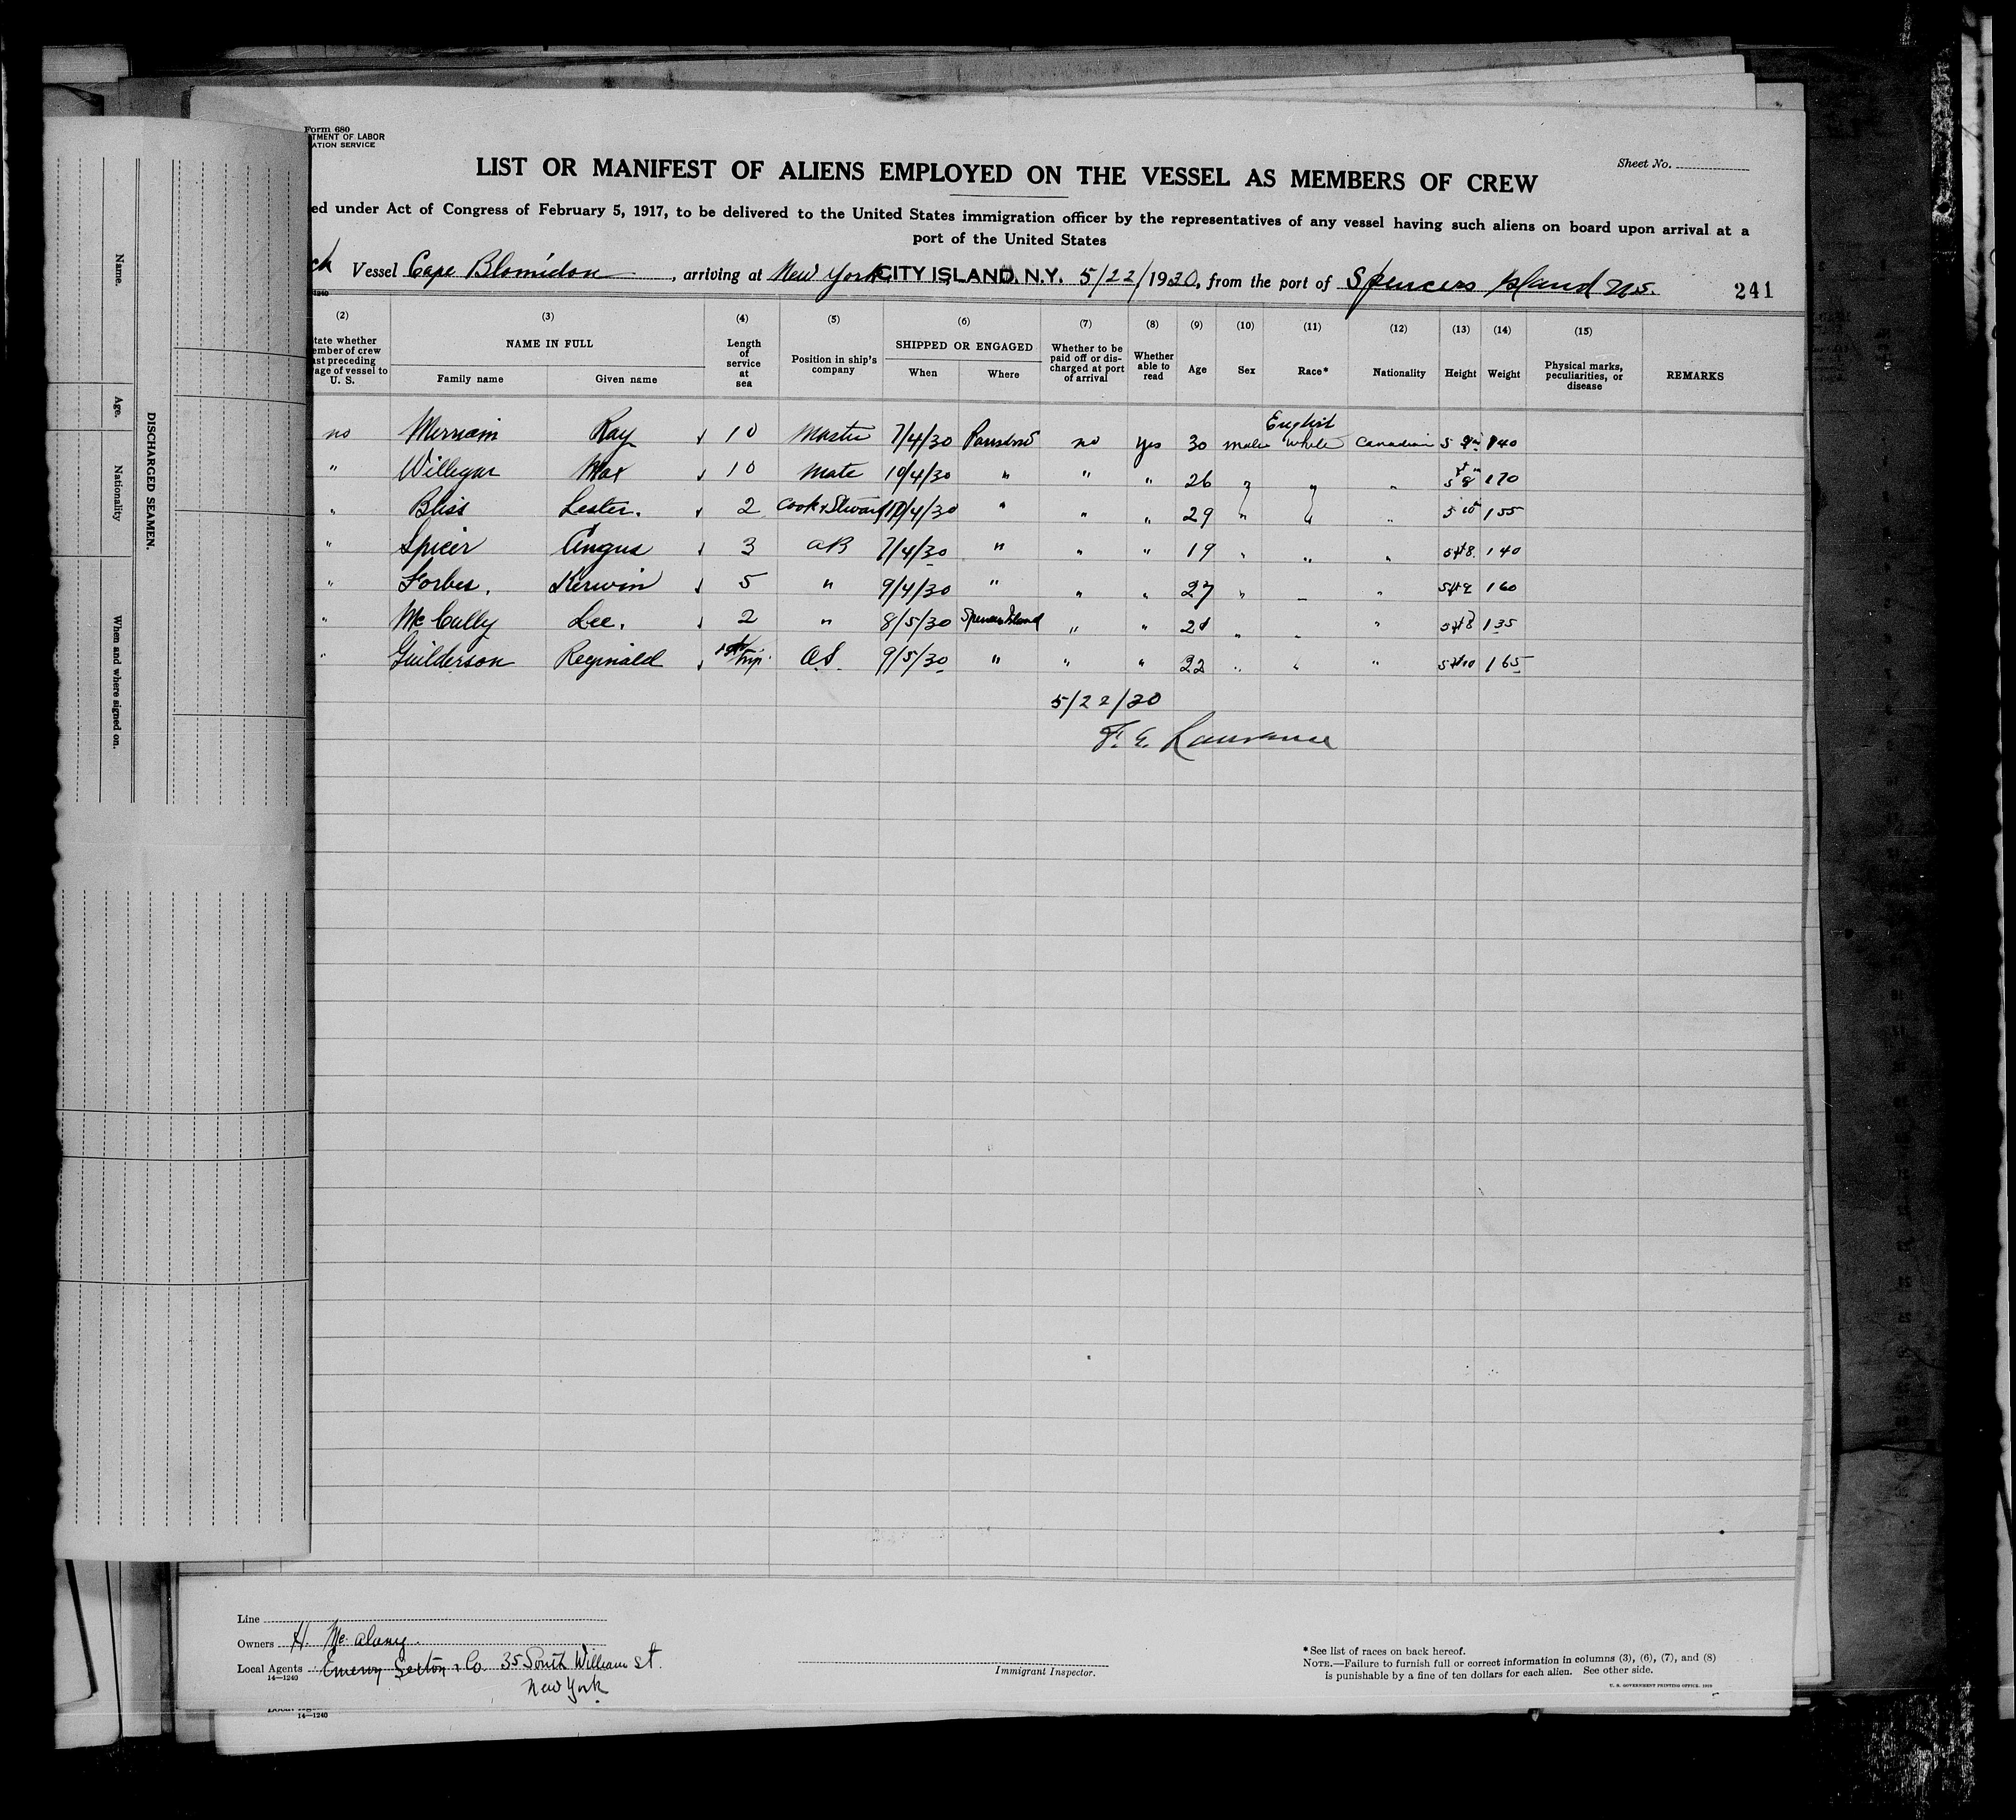 Form 680
TMENT OF LABOR
ATION SERVICE
Sheet No.
LIST OR MANIFEST OF ALIENS EMPLOYED ON THE VESSEL AS MEMBERS OF CREW
ed under Act of Congress of February 5, 1917, to be delivered to the United States immigration officer by the representatives of any vessel having such aliens on board upon arrival at a
port of the United States
ch Vessel Cape Blomidon, arriving at New York CITY ISLAND, N.Y. 5/22/1930, from the port of Spencers Island N.S. 241
(2) (3) (4) (5) (6) (7) (8) (9) (10) (11) (12) (13) (14) (15)
tate whether ember of crew ast preceding age of vessel to U. S.
NAME IN FULL
Family name Given name
Length of service at sea
Position in ship's company
SHIPPED OR ENGAGED
When Where
Whether to be paid off or discharged at port of arrival
Whether able to read
Age Sex Race* Nationality Height Weight
Physical marks, peculiarities, or disease
REMARKS
no Merriam Ray 10 Master 7/4/30 no yes 30 male English White Canadian 140
" Willigar Max 10 Mate 10/4/30 " " " 26 " " " 5 8 170
" Bliss Lester. 2 Cook & Steward 10/4/30 " " " 29 " " " 155
" Spicer Angus 3 AB 7/4/30 " " " 19 " " " 5ft8 140
" Forbes, Kerwin 5 " 9/4/30 " " " 27 " " " 160
" McCully Lee. 2 " 8/5/30 Spencers Island " " " " " 5ft8 135
" Guilderson Reginald 1st Trip O.S. 9/5/30 " " " 22 " " " 5ft10 165
5/22/30
F. E. Lawrance
Line
Owners H.
Local Agents Emery Sexton & Co. 35 South William St.
New York
14—1240
Immigrant Inspector.
* See list of races on back hereof.
NOTE.—Failure to furnish full or correct information in columns (3), (6), (7), and (8)
is punishable by a fine of ten dollars for each alien. See other side.
14—1240
Name. Age. Nationality When and where signed on.
DISCHARGED SEAMEN.